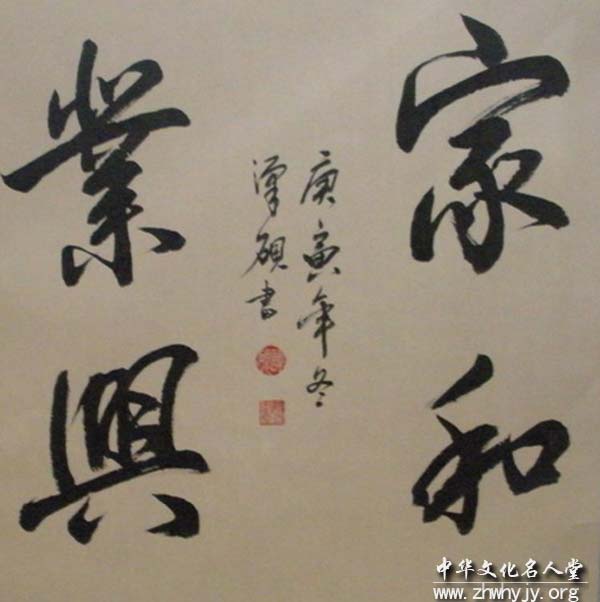 家和
庚寅年冬
書
業興
中华文化名人堂
www.zhwhyjy.org